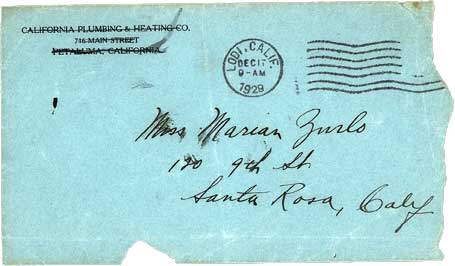 CALIFORNIA PLUMBING & HEATING CO.
716 MAIN STREET
PETALUMA, CALIFORNIA
LODI, CALIF.
DEC 17
9-AM
1929
Miss Marian Zurlo
120 9th St
Santa Rosa, Calif